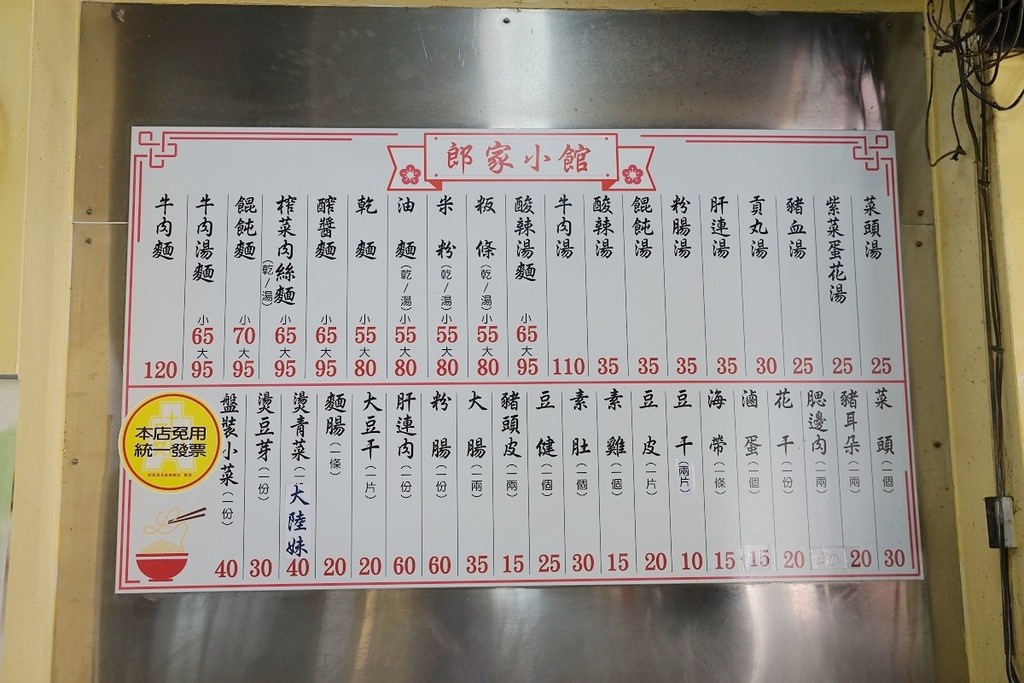 郎家小館
牛肉麵 120
牛肉湯麵 小65 大95
餛飩麵 小70 大95
榨菜肉絲麵(乾/湯) 小65 大95
醡醬麵 小65 大95
乾麵 小55 大80
油麵(乾/湯) 小55 大80
米粉(乾/湯) 小55 大80
粄條(乾/湯) 小55 大80
酸辣湯麵 小65 大95
牛肉湯 110
酸辣湯 35
餛飩湯 35
粉腸湯 35
肝連湯 35
貢丸湯 30
豬血湯 25
紫菜蛋花湯 25
菜頭湯 25
本店免用
統一發票
盤裝小菜(一份) 40
燙豆芽(一份) 30
燙青菜(一 大陸妹 40
麵腸(一條) 20
大豆干(一片) 20
肝連肉(一份) 60
粉腸(一份) 60
大腸(一兩) 35
豬頭皮(一兩) 15
豆健(一個) 25
素肚(一個) 30
素雞(一個) 15
豆皮(一片) 20
豆干(兩片) 10
海帶(一條) 15
滷蛋(一個) 15
花干(一份) 20
腮邊肉(一兩)
豬耳朵(一兩) 20
菜頭(一個) 30